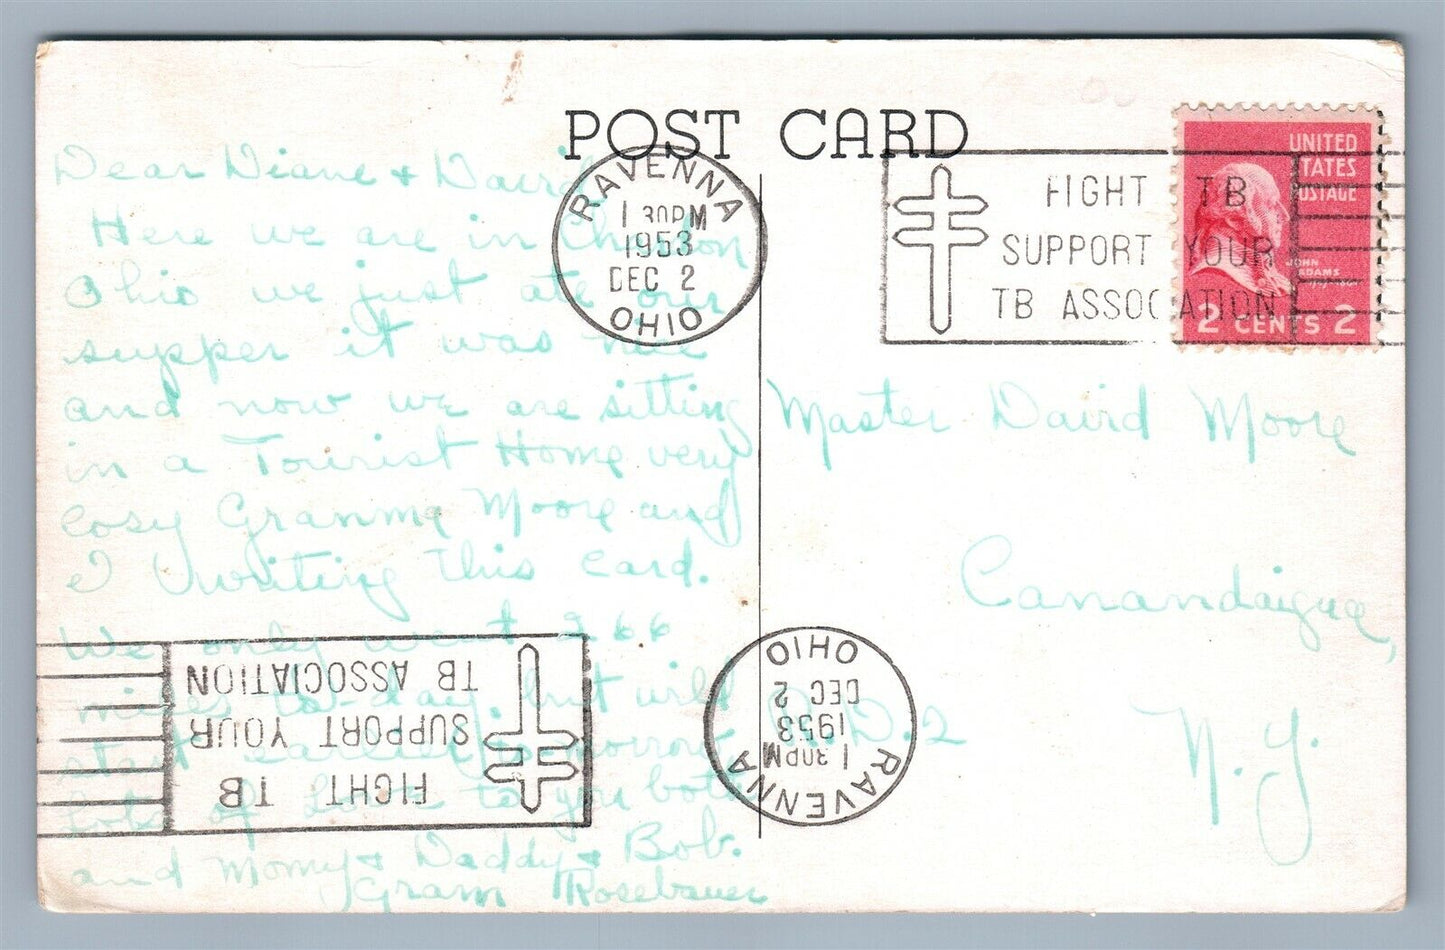 POST CARD
RAVENNA
1 30PM
1953
DEC 2
OHIO
FIGHT TB
SUPPORT YOUR
TB ASSOCIATION
UNITED
STATES
POSTAGE
JOHN
ADAMS
2 CENTS 2
Dear Diane & David
Here we are in
Ohio we just ate our
supper it was nice
and now we are sitting
in a Tourist Home very
cosy Granma Moore and
I writing this card.
We only went 266
miles to-day. but will
start earlier tomorrow
Lots of Love to you both
and Momy & Daddy & Bob.
Gram Rosebauer
Master David Moore
Canandaigua,
R.D.2
N.Y.
FIGHT TB
SUPPORT YOUR
TB ASSOCIATION
RAVENNA
1 30PM
1953
DEC 2
OHIO